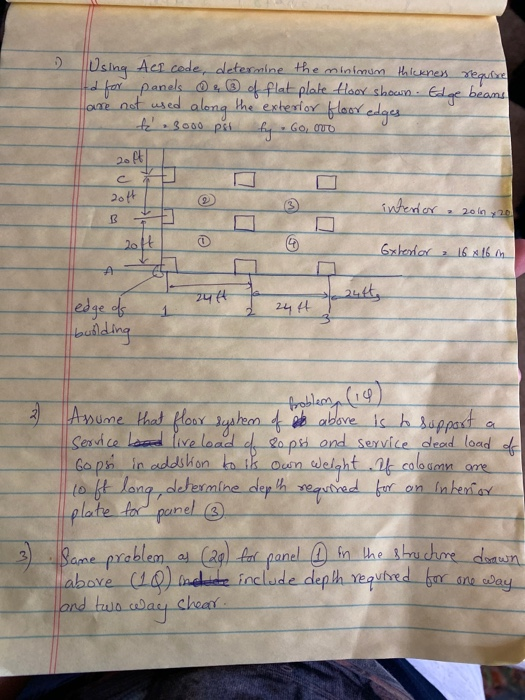 1) Using ACI code, determine the minimum thickness require
-d for panels ① & ③ of flat plate floor shown. Edge beams
are not used along the exterior floor edges
fc' = 3000 psi fy = 60,000
20 ft
C
20 ft
② ③
interior = 20 in x 20
B
20 ft
① ④
Exterior = 16 x 16 in
A
24 ft 24 ft 24 ft
edge of 1 2 3
building
Problem (1Q)
2) Assume that floor system of above is to support a
service live load of 80 psi and service dead load of
60 psi in addstion to its own weight. If coloumn are
10 ft long, determine depth required for an interior
plate for panel ③
3) Same problem as (2Q) for panel ① in the structure drawn
above (1Q) include depth required for one way
and two way shear.